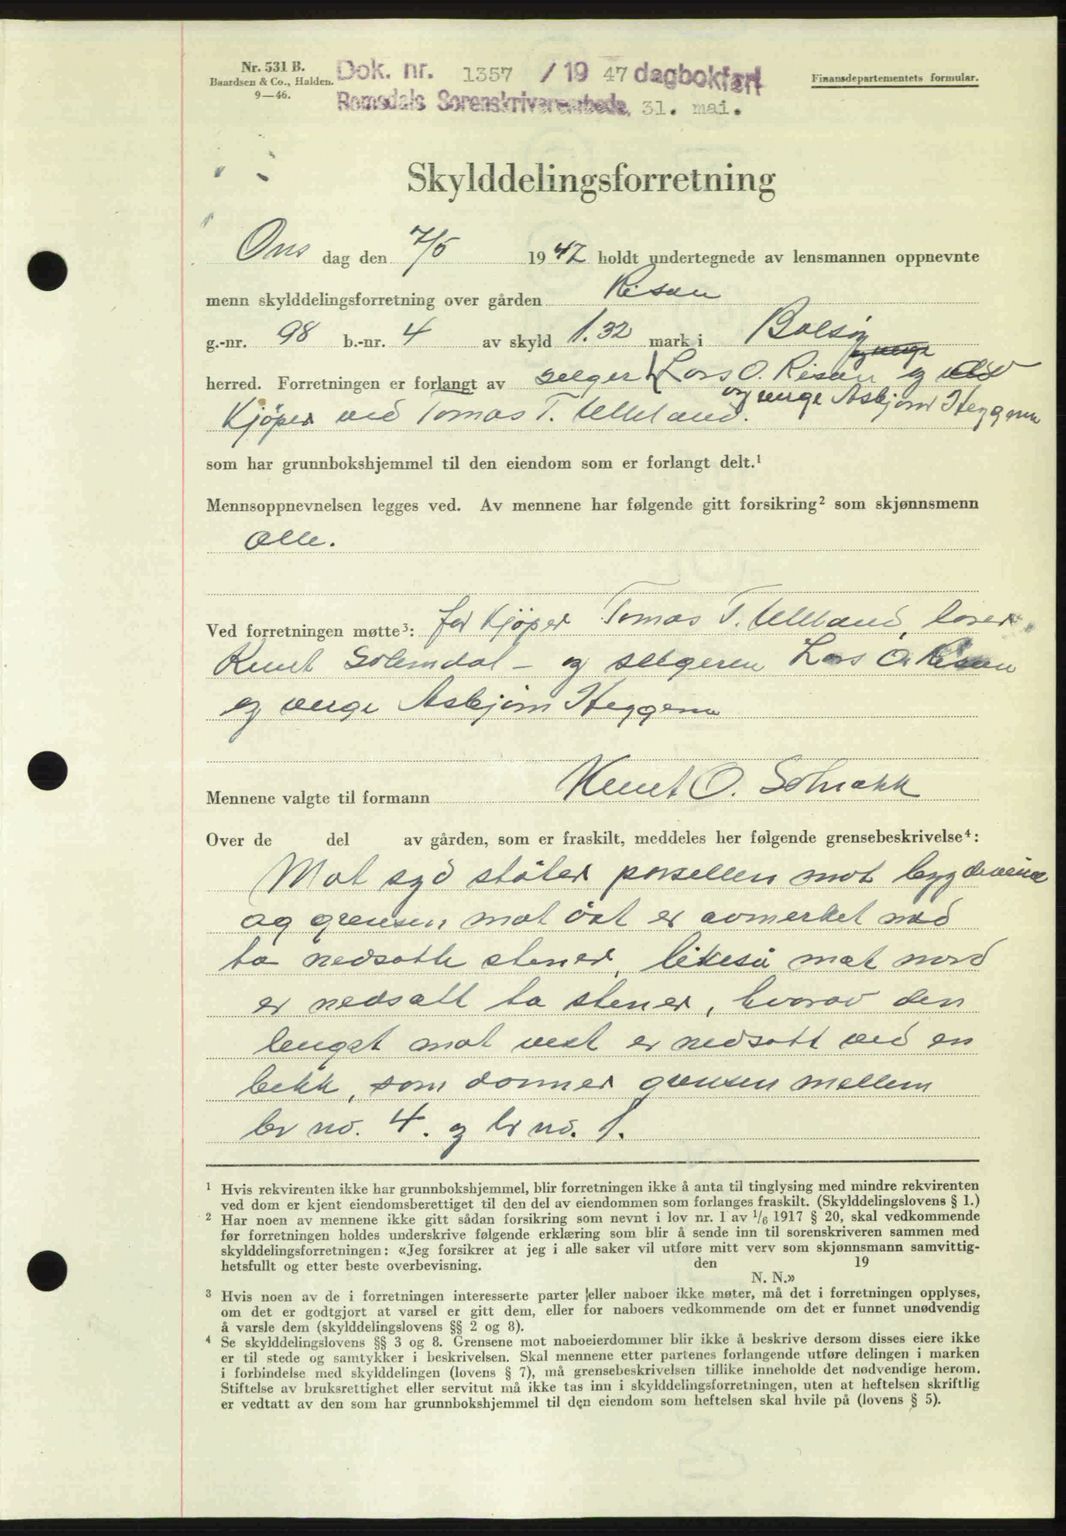 Nr. 531 B.
Baardsen & Co., Halden.
9—46.
Dok. nr. 1357 / 19 47 dagbokført
Romsdals Sorenskriverembede, 31. mai.
Finansdepartementets formular.
Skylddelingsforretning
Ons dag den 7/5 1947 holdt undertegnede av lensmannen oppnevnte
menn skylddelingsforretning over gården Risan
g.-nr. 98 b.-nr. 4 av skyld 1.32 mark i Bolsøy
herred. Forretningen er forlangt av selger Lars O. Risan og
og verge Asbjørn Heggem
Kjøper ved Tomas T. Ulleland.
som har grunnbokshjemmel til den eiendom som er forlangt delt.¹
Mennsoppnevnelsen legges ved. Av mennene har følgende gitt forsikring² som skjønnsmenn
Alle.
Ved forretningen møtte³: for kjøper Tomas T. Ulleland,
Knut Solemdal - og selgeren Lars O. Risan
og verge Asbjørn Heggem
Mennene valgte til formann Knut O. Solnakk
Over de del av gården, som er fraskilt, meddeles her følgende grensebeskrivelse⁴:
Mot syd støter parsellen mot bygdeveien
og grensen mot øst er avmerket med
to nedsatte stener, likeså mot nord
er nedsatt to stener, hvorav den
lengst mot vest er nedsatt ved en
bekk, som danner grensen mellem
br no. 4. og br no. 1.
¹ Hvis rekvirenten ikke har grunnbokshjemmel, blir forretningen ikke å anta til tinglysing med mindre rekvirenten
ved dom er kjent eiendomsberettiget til den del av eiendommen som forlanges fraskilt. (Skylddelingslovens § 1.)
² Har noen av mennene ikke gitt sådan forsikring som nevnt i lov nr. 1 av 1/6 1917 § 20, skal vedkommende
før forretningen holdes underskrive følgende erklæring som blir å sende inn til sorenskriveren sammen med
skylddelingsforretningen: «Jeg forsikrer at jeg i alle saker vil utføre mitt verv som skjønnsmann samvittig-
hetsfullt og etter beste overbevisning. den 19
N. N.»
³ Hvis noen av de i forretningen interesserte parter eller naboer ikke møter, må det i forretningen opplyses,
om det er godtgjort at varsel er gitt dem, eller for naboers vedkommende om det er funnet unødvendig
å varsle dem (skylddelingslovens §§ 2 og 8).
⁴ Se skylddelingslovens §§ 3 og 8. Grensene mot naboeierdommer blir ikke å beskrive dersom disses eiere ikke
er til stede og samtykker i beskrivelsen. Skal mennene etter partenes forlangende utføre delingen i marken
i forbindelse med skylddelingen (lovens § 7), må grensebeskrivelsen tillike inneholde det nødvendige herom.
Stiftelse av bruksrettighet eller servitut må ikke tas inn i skylddelingsforretningen, uten at heftelsen skriftlig
er vedtatt av den som har grunnbokshjemmel til den eiendom som heftelsen skal hvile på (lovens § 5).